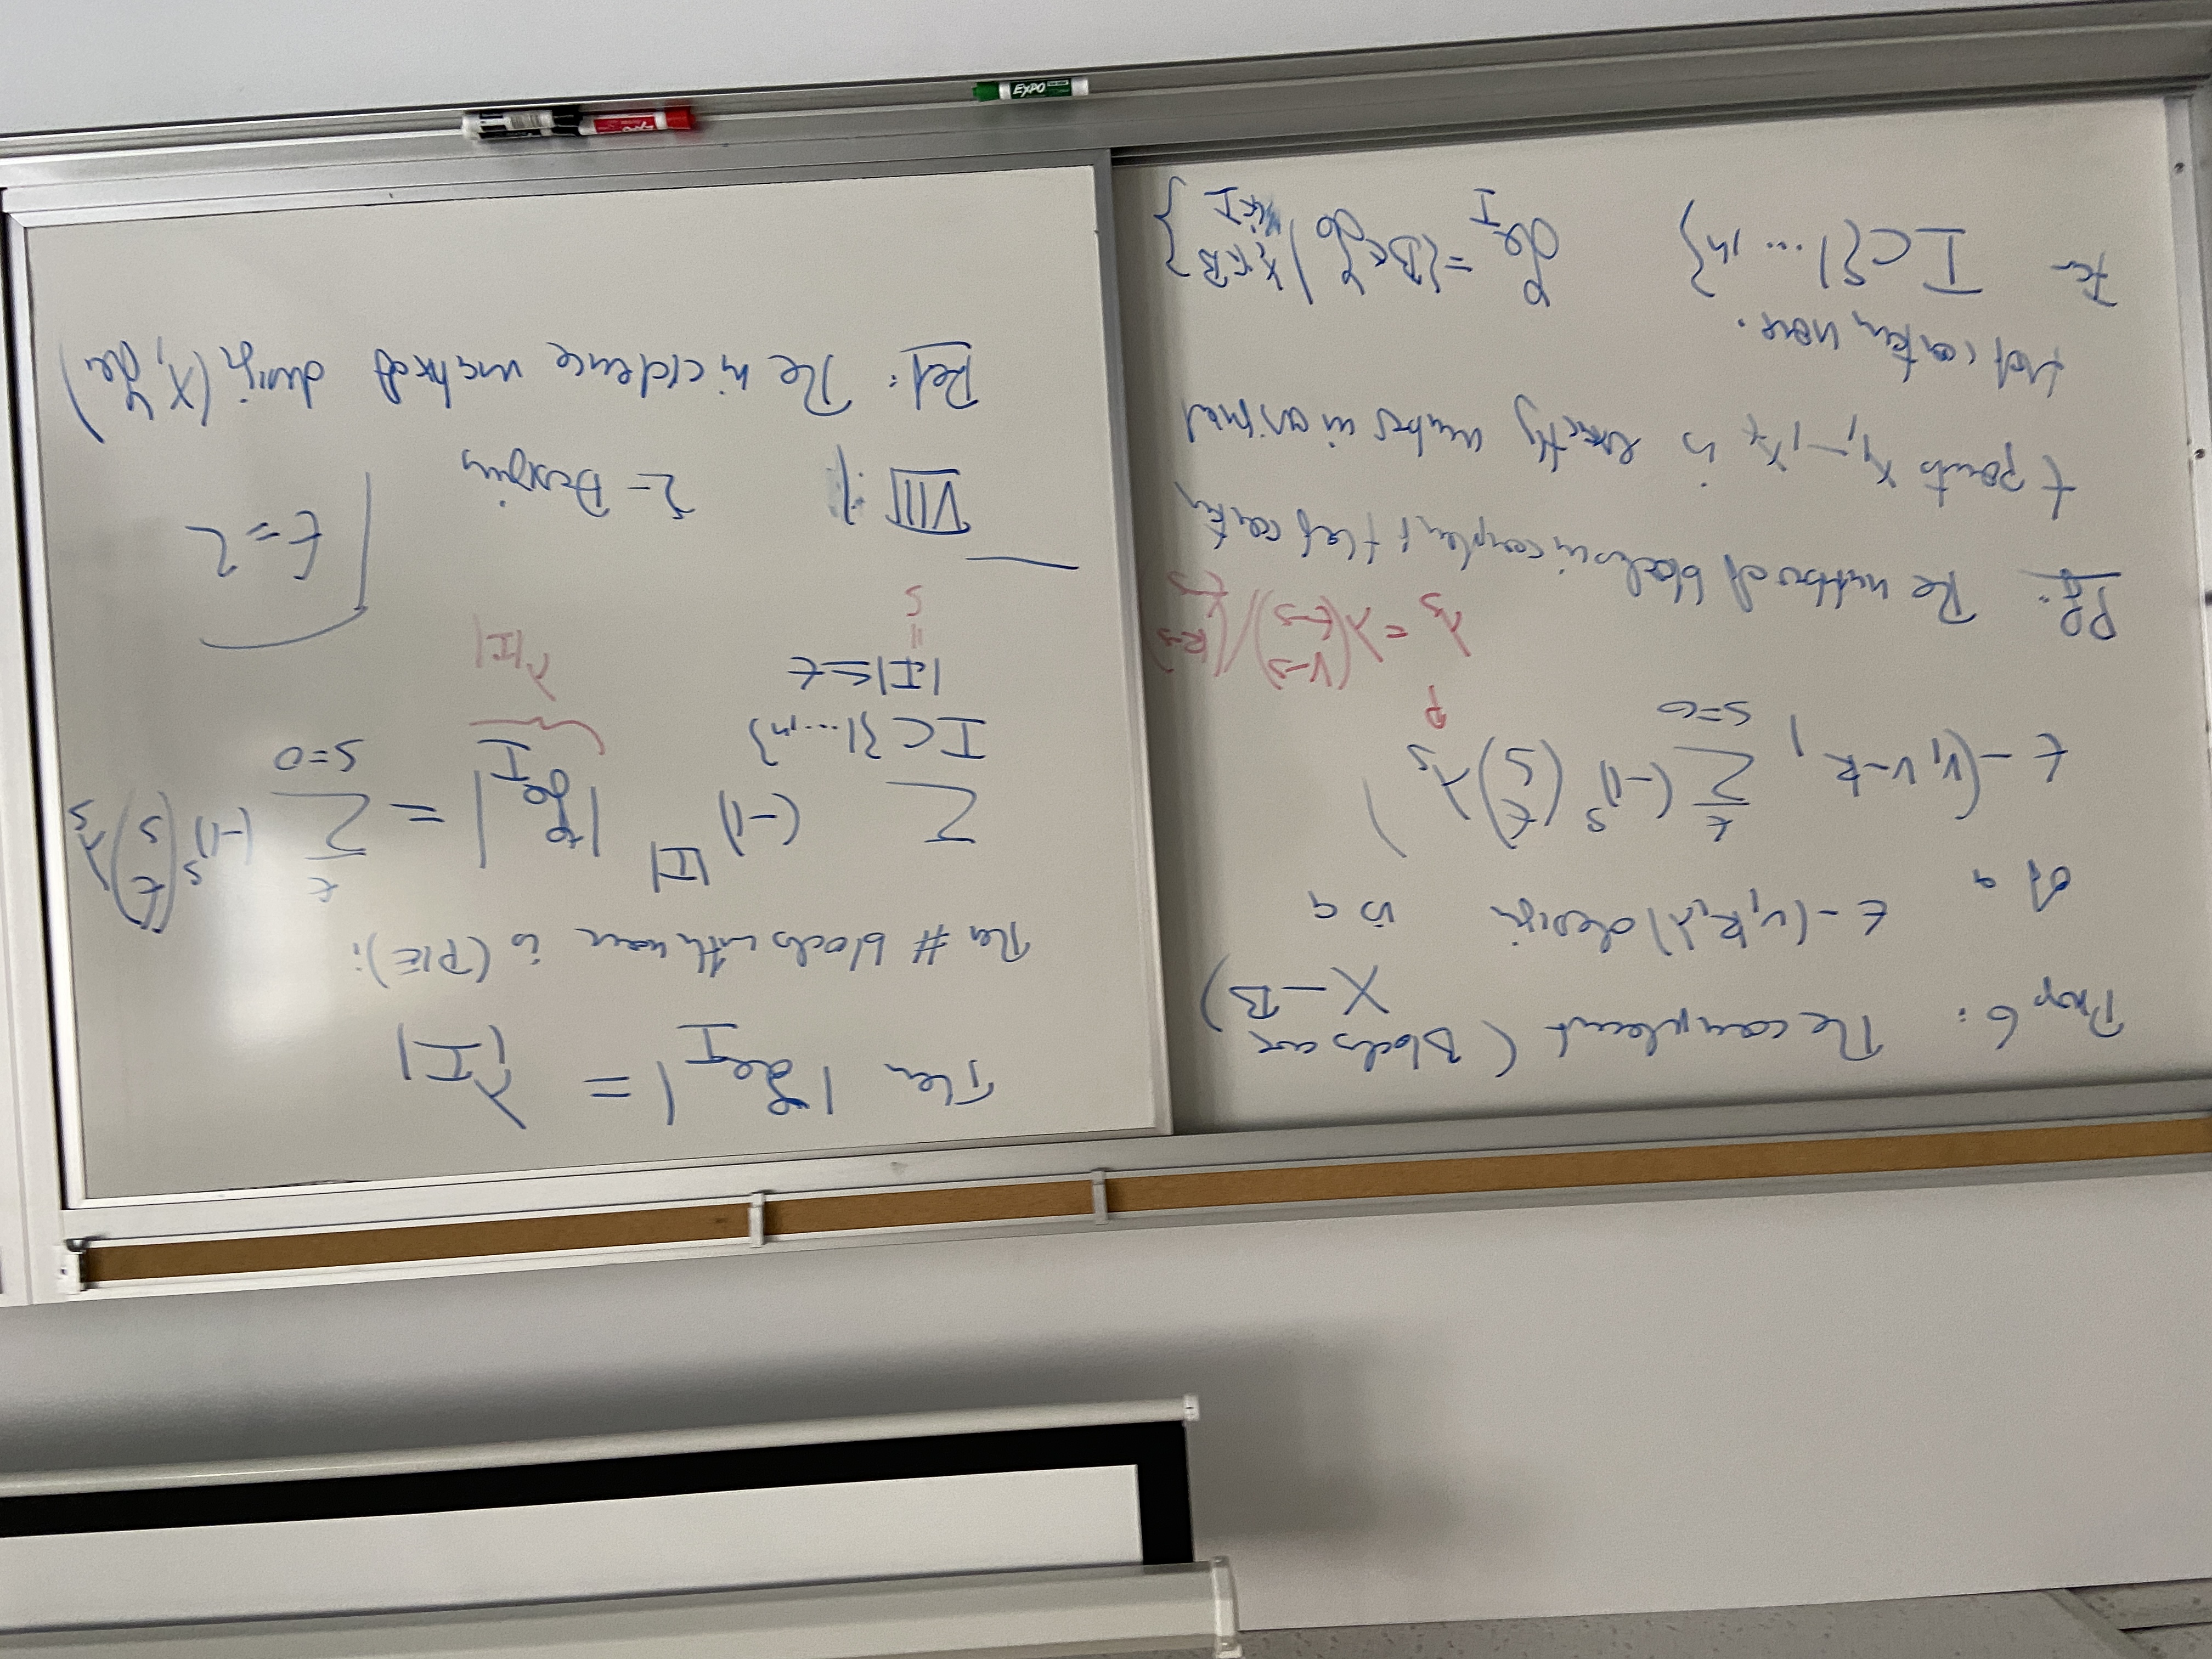 Prop 6: The complement (Blocks are
X – B)
of a t-(v,k,λ) design is a
t-(v, v-k, \sum_{s=0}^{t} (-1)^s \binom{t}{s} λ_s)
λ_s = λ \binom{v-s}{t-s} / \binom{k-s}{t-s}
Pf: The number of blocks in complement that contain
t points x_1 - , x_t is exactly number in original
that contain none.
For I ⊂ {1...,n} \mathcal{B}_I = {B ∈ \mathcal{B} | x_i ∈ B
i ∈ I}
Then |\mathcal{B}_I| = λ_{|I|}
The # blocks with none is (PIE):
\sum_{I ⊂ {1...,n}} (-1)^{|I|} |\mathcal{B}_I| = \sum_{s=0}^{t} (-1)^s \binom{t}{s} λ_s
λ_{|I|}
|I| ≤ t
=
s
t=2
VIII. 2-Designs
Def: The incidence matrix of design (X, \mathcal{B})
EXPO